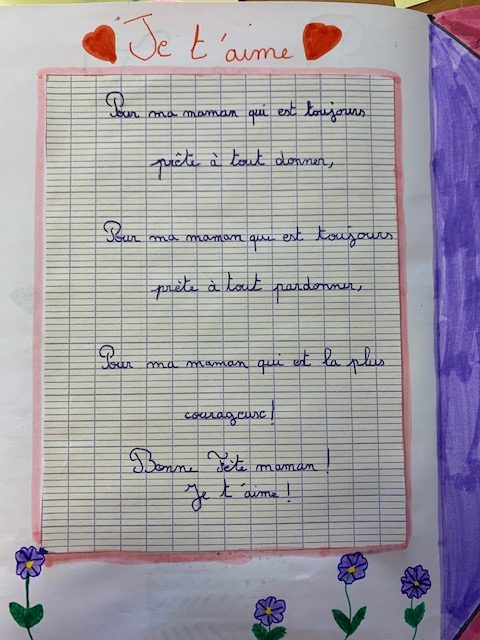 Je t'aime
Pour ma maman qui est toujours
prête à tout donner,
Pour ma maman qui est toujours
prête à tout pardonner,
Pour ma maman qui est la plus
courageuse!
Bonne Fête maman !
Je t'aime !